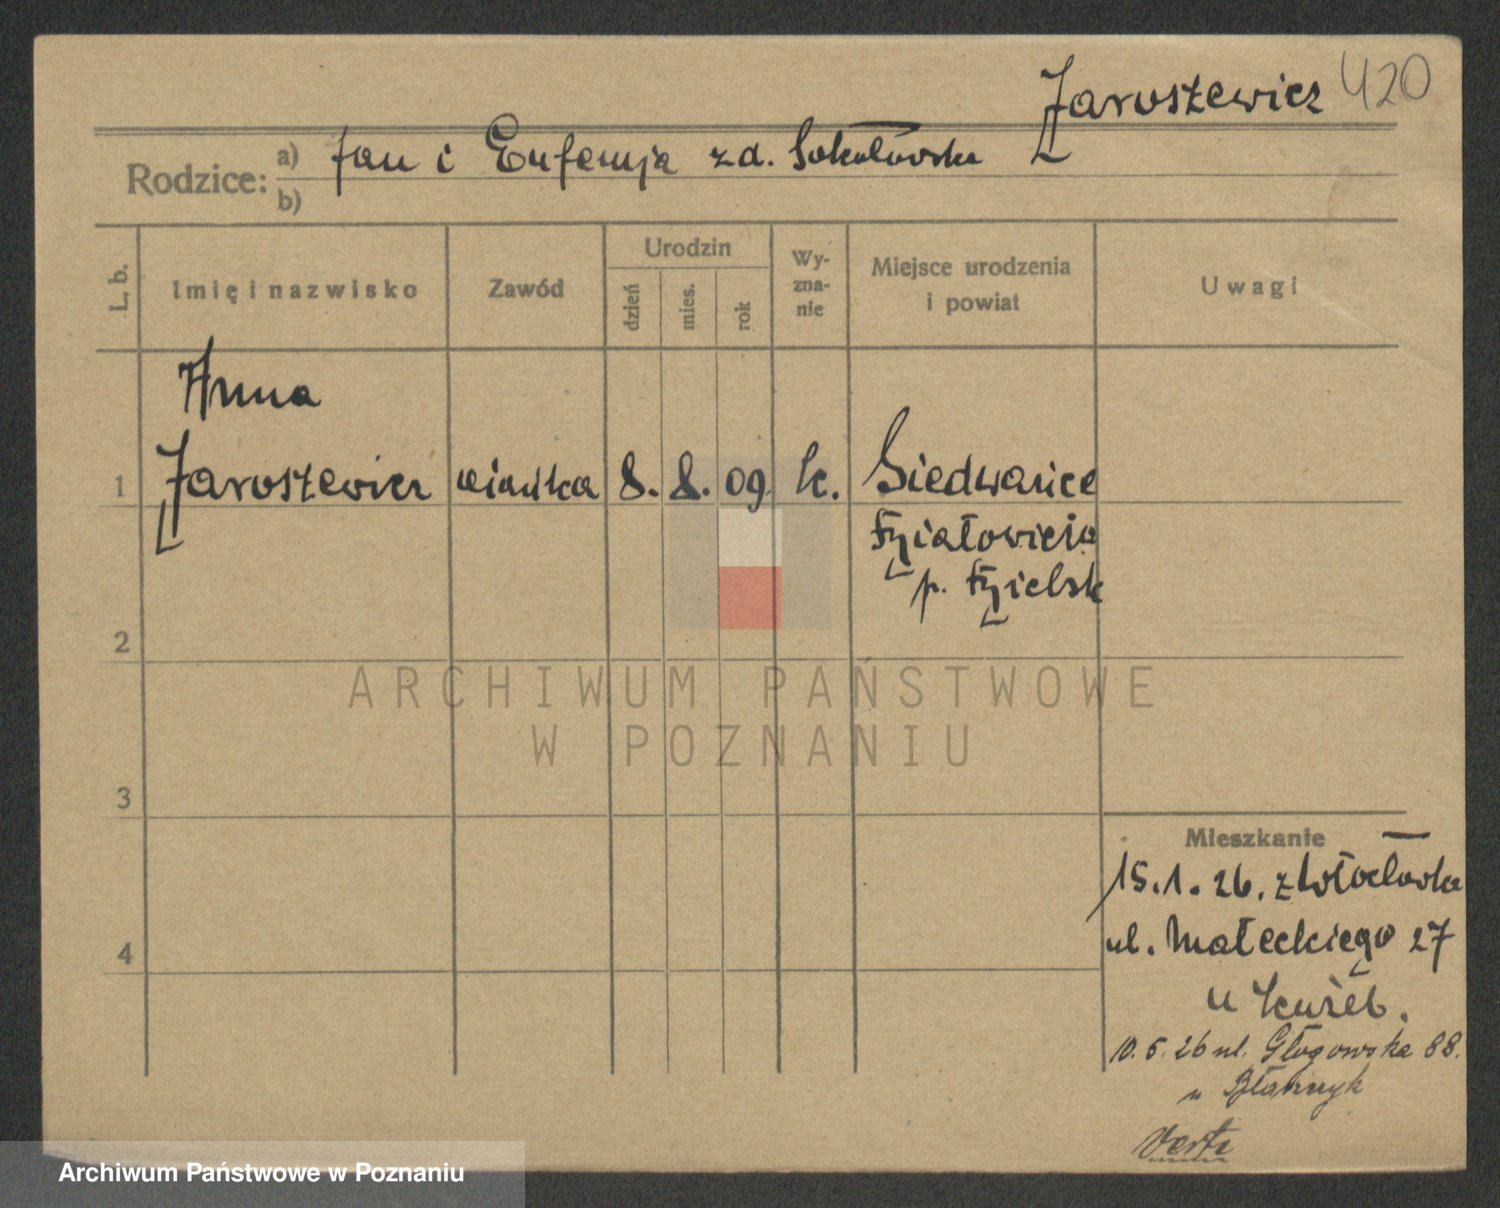 Jaroszewicz 420
Rodzice: a) Jan i Eufemja zd. Sokołowska
b)
L. b.
Imię i nazwisko
Zawód
Urodzin
dzień
mies.
rok
Wy-
zna-
nie
Miejsce urodzenia
i powiat
Uwagi
Anna
1 Jaroszewicz 8. 8. 09. k.
p.
2
ARCHIWUM PAŃSTWOWE
W POZNANIU
3
Mieszkanie
15.1.26. z Włocławka
ul. Małeckiego 27
4
u
10.5.26 ul. Głogowska 88.
u
Verte
Archiwum Państwowe w Poznaniu